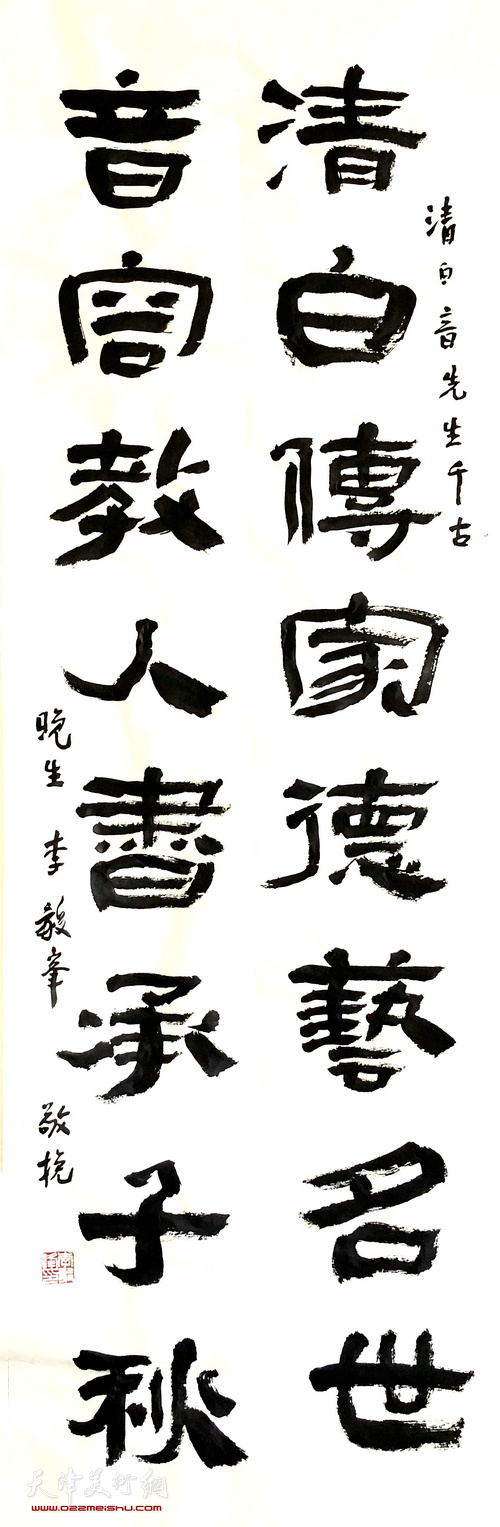 清白音先生千古
清白傳家德藝名世
音容教人書承子秋
晚生 李毅峯 敬挽
天津美術網
www.022meishu.com